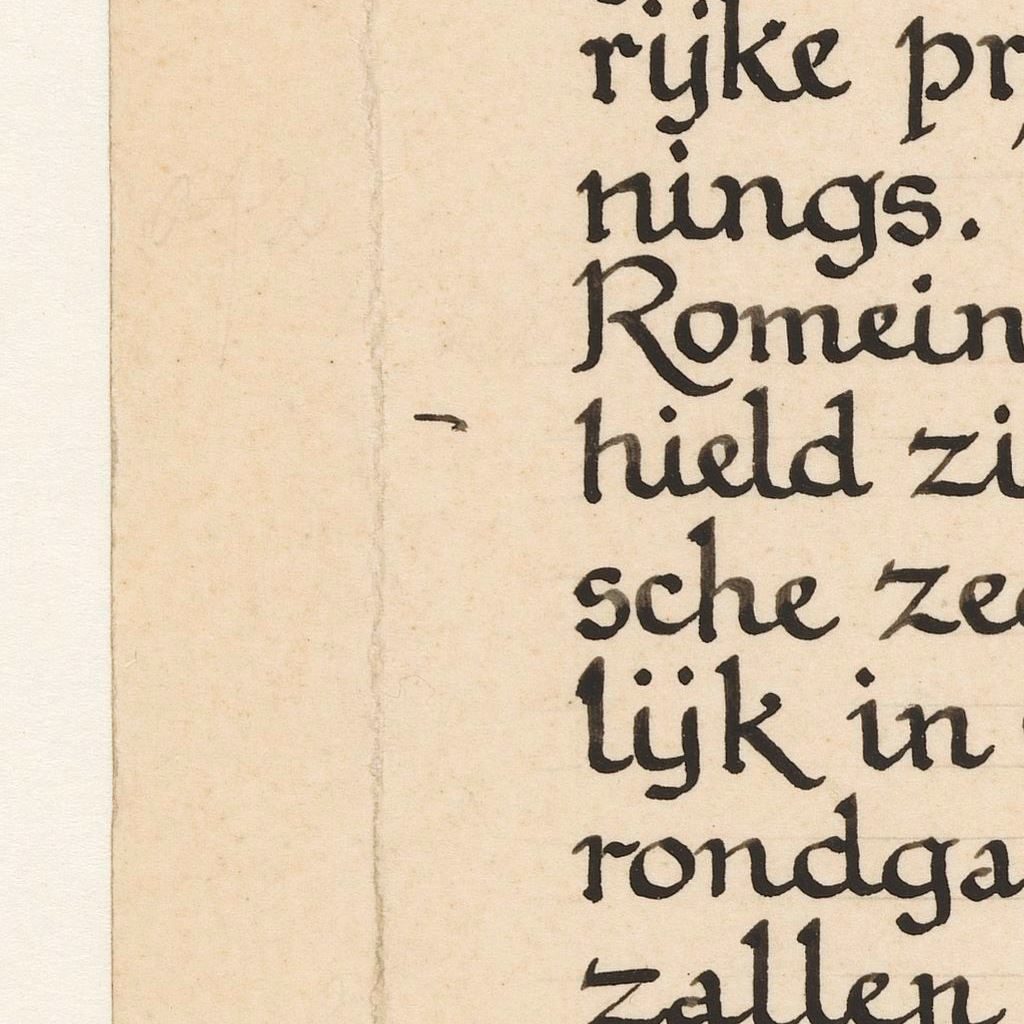 rijke pr
nings.
Romein
hield zi
sche zee
lijk in
rondga
zallen